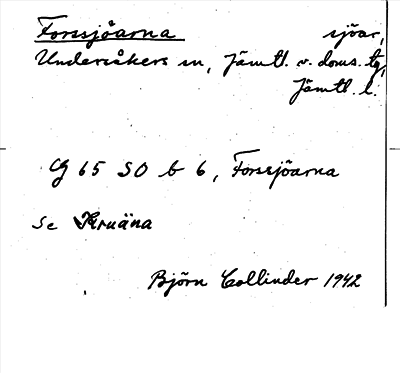 Forssjöarna sjöar,
Undersåkers sn, Jämtl. v. doms. tg,
Jämtl. l.
G 65 SO b 6, Forssjöarna
Se Kruäna
Björn Collinder 1942